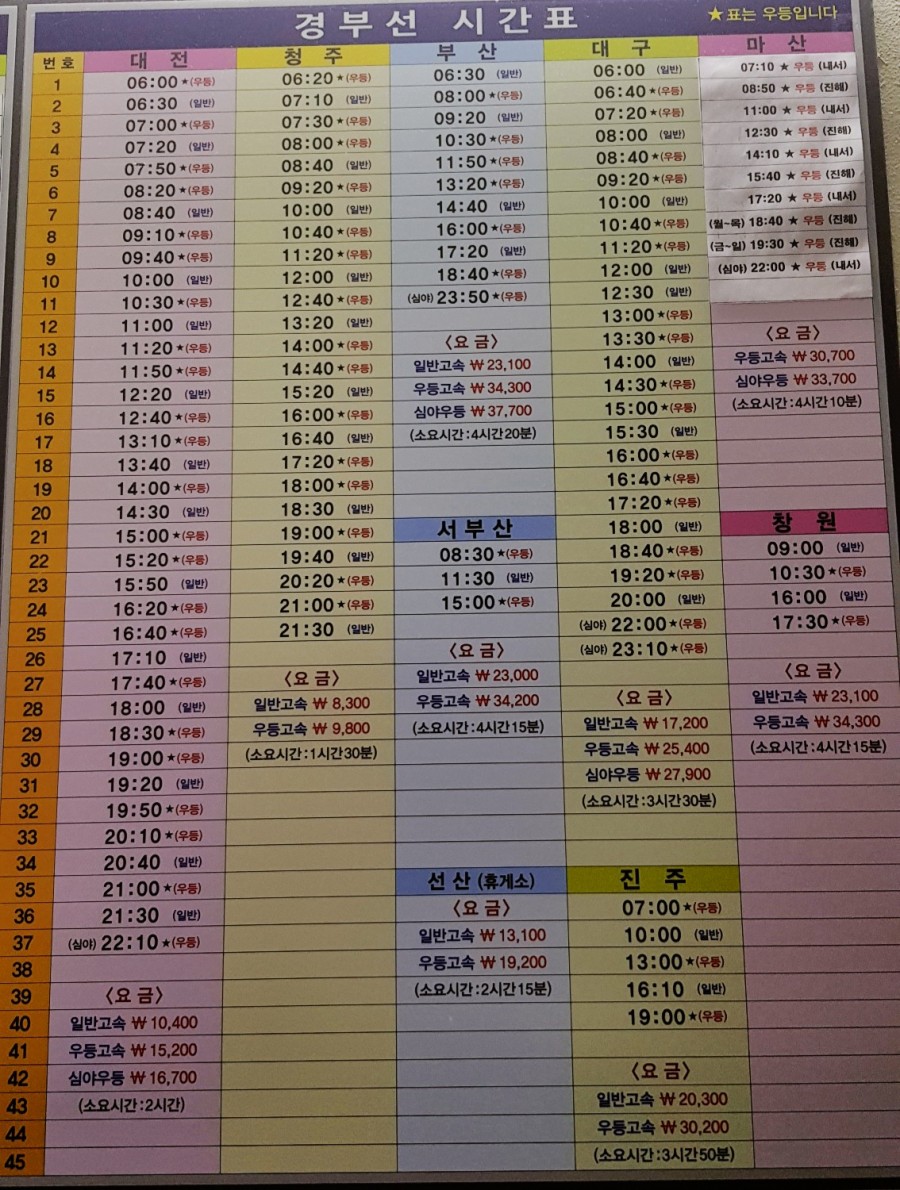 경부선 시간표
★표는 우등입니다
번호
1
2
3
4
5
6
7
8
9
10
11
12
13
14
15
16
17
18
19
20
21
22
23
24
25
26
27
28
29
30
31
32
33
34
35
36
37
38
39
40
41
42
43
44
45
대전
06:00 ★(우등)
06:30 (일반)
07:00 ★(우등)
07:20 (일반)
07:50 ★(우등)
08:20 ★(우등)
08:40 (일반)
09:10 ★(우등)
09:40 ★(우등)
10:00 (일반)
10:30 ★(우등)
11:00 (일반)
11:20 ★(우등)
11:50 ★(우등)
12:20 (일반)
12:40 ★(우등)
13:10 ★(우등)
13:40 (일반)
14:00 ★(우등)
14:30 (일반)
15:00 ★(우등)
15:20 ★(우등)
15:50 (일반)
16:20 ★(우등)
16:40 ★(우등)
17:10 (일반)
17:40 ★(우등)
18:00 (일반)
18:30 ★(우등)
19:00 ★(우등)
19:20 (일반)
19:50 ★(우등)
20:10 ★(우등)
20:40 (일반)
21:00 ★(우등)
21:30 (일반)
(심야) 22:10 ★(우등)
〈요 금〉
일반고속 ₩ 10,400
우등고속 ₩ 15,200
심야우등 ₩ 16,700
(소요시간:2시간)
청주
06:20 ★(우등)
07:10 (일반)
07:30 ★(우등)
08:00 ★(우등)
08:40 (일반)
09:20 ★(우등)
10:00 (일반)
10:40 ★(우등)
11:20 ★(우등)
12:00 (일반)
12:40 ★(우등)
13:20 (일반)
14:00 ★(우등)
14:40 ★(우등)
15:20 (일반)
16:00 ★(우등)
16:40 (일반)
17:20 ★(우등)
18:00 ★(우등)
18:30 (일반)
19:00 ★(우등)
19:40 (일반)
20:20 ★(우등)
21:00 ★(우등)
21:30 (일반)
〈요 금〉
일반고속 ₩ 8,300
우등고속 ₩ 9,800
(소요시간:1시간30분)
부산
06:30 (일반)
08:00 ★(우등)
09:20 (일반)
10:30 ★(우등)
11:50 ★(우등)
13:20 ★(우등)
14:40 (일반)
16:00 ★(우등)
17:20 (일반)
18:40 ★(우등)
(심야) 23:50 ★(우등)
〈요 금〉
일반고속 ₩ 23,100
우등고속 ₩ 34,300
심야우등 ₩ 37,700
(소요시간:4시간20분)
서부산
08:30 ★(우등)
11:30 (일반)
15:00 ★(우등)
〈요 금〉
일반고속 ₩ 23,000
우등고속 ₩ 34,200
(소요시간:4시간15분)
선산 (휴게소)
〈요 금〉
일반고속 ₩ 13,100
우등고속 ₩ 19,200
(소요시간:2시간15분)
대구
06:00 (일반)
06:40 ★(우등)
07:20 ★(우등)
08:00 (일반)
08:40 ★(우등)
09:20 ★(우등)
10:00 (일반)
10:40 ★(우등)
11:20 ★(우등)
12:00 (일반)
12:30 (일반)
13:00 ★(우등)
13:30 ★(우등)
14:00 (일반)
14:30 ★(우등)
15:00 ★(우등)
15:30 (일반)
16:00 ★(우등)
16:40 ★(우등)
17:20 ★(우등)
18:00 (일반)
18:40 ★(우등)
19:20 ★(우등)
20:00 (일반)
(심야) 22:00 ★(우등)
(심야) 23:10 ★(우등)
〈요 금〉
일반고속 ₩ 17,200
우등고속 ₩ 25,400
심야우등 ₩ 27,900
(소요시간:3시간30분)
진주
07:00 ★(우등)
10:00 (일반)
13:00 ★(우등)
16:10 (일반)
19:00 ★(우등)
〈요 금〉
일반고속 ₩ 20,300
우등고속 ₩ 30,200
(소요시간:3시간50분)
마산
07:10 ★ 우등 (내서)
08:50 ★ 우등 (진해)
11:00 ★ 우등 (내서)
12:30 ★ 우등 (진해)
14:10 ★ 우등 (내서)
15:40 ★ 우등 (진해)
17:20 ★ 우등 (내서)
(월~목) 18:40 ★ 우등 (진해)
(금~일) 19:30 ★ 우등 (진해)
(심야) 22:00 ★ 우등 (내서)
〈요 금〉
우등고속 ₩ 30,700
심야우등 ₩ 33,700
(소요시간:4시간10분)
창원
09:00 (일반)
10:30 ★(우등)
16:00 (일반)
17:30 ★(우등)
〈요 금〉
일반고속 ₩ 23,100
우등고속 ₩ 34,300
(소요시간:4시간15분)